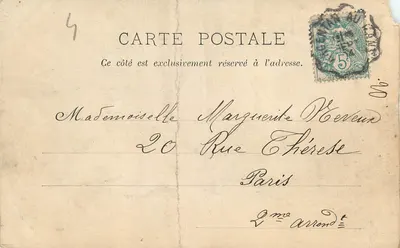 4
CARTE POSTALE
Ce côté est exclusivement réservé à l'adresse.
5
20
Mademoiselle Marguerite Neveux
20 Rue Thérèse
Paris
2me arrondt